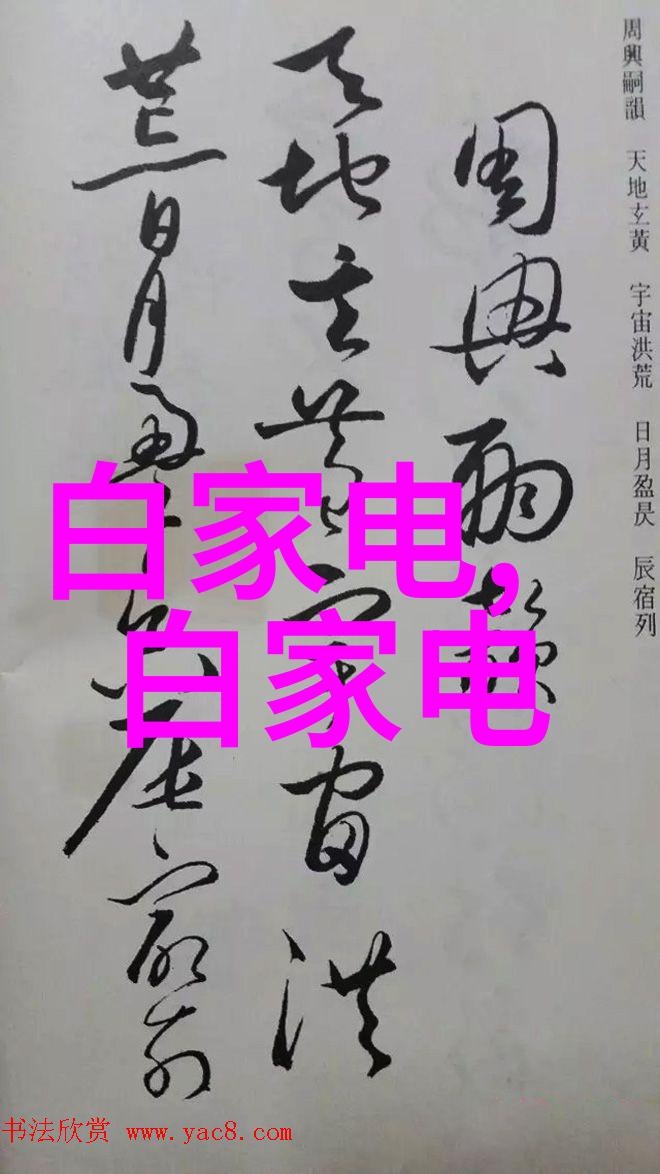 周興嗣韻 天地玄黃 宇宙洪荒 日月盈昃 辰宿列
周興嗣韻
天地玄黃宇宙洪
荒日月盈昃辰宿列
白家电,
白家电
书法欣赏 www.yac8.com